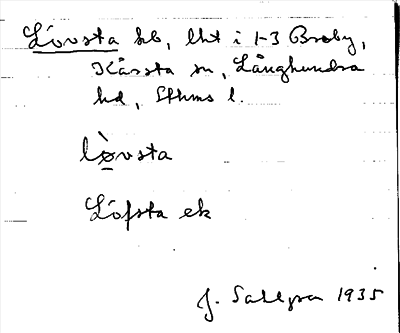 Lövsta hb, lht i 1-3 Broby,
Kårsta sn, Långhundra
hd, Sthms l.
lòvsta
Löfsta ek
J. Sahlgren 1935